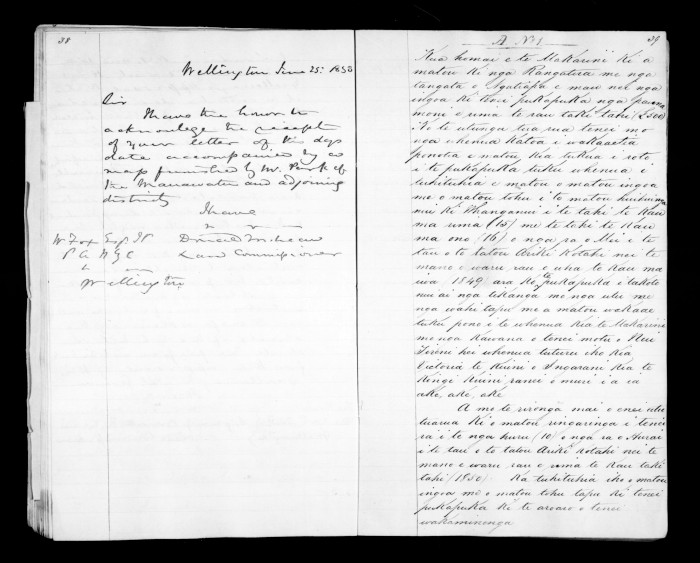 38
Wellington June 25th 1850
Sir
I have the honor to
acknowlege the receipt
of your letter of this days
date accompanied by a
map furnished by Mr. Park of
the Manawatu and adjoining
districts
I have
Donald McLean
Land Commissioner
W Fox Esqr
P A NZC
Wellington
A No 1
39
Kua homai e te Makarini ki a
matou ki nga Rangatira me nga
tangata o Ngatiapa e mau nei nga
ingoa ki tenei pukapuka nga pauna
moni e rima te rau takitahi (£500)
Ko te utunga tuarua tenei mo
nga whenua katoa i wakaaetia
ponotia e matou kia tukua i roto
i te pukapuka tuku whenua i
tuhituhia e matou o matou ingoa
me o matou tohu i to matou huihuinga
nui ki Whanganui i te tahi te kau
ma rima (15) me te tahi te kau
ma ono (16) o nga ra o Mei i te
tau o to tatou Ariki kotahi nei te
mano e waru rau e wha te kau ma
iwa 1849 ara ki te pukapuka i takoto
nui ai nga tikanga mo nga utu me
nga wahi tapu me a matou wakaae
tuku pono i te whenua kia te Makarini
me nga Kawana o tenei motu o Niu
Tireni hei whenua tuturu iho kia
Victoria te Kuini o Ingarani kia te
Kingi Kuini ranei o muri i a ia
ake, ake, ake
A mo te rironga mai o enei utu
tuarua ki o matou ringaringa i tenei
ra i te nga huru (10) o nga ra o Hurai
i te tau o to tatou Ariki kotahi nei te
mano e waru rau e rima te kau taki
tahi (1850) Ka tuhituhia iho o matou
ingoa me o matou tohu tapu ki tenei
pukapuka ki te aroaro o tenei
wakaminenga